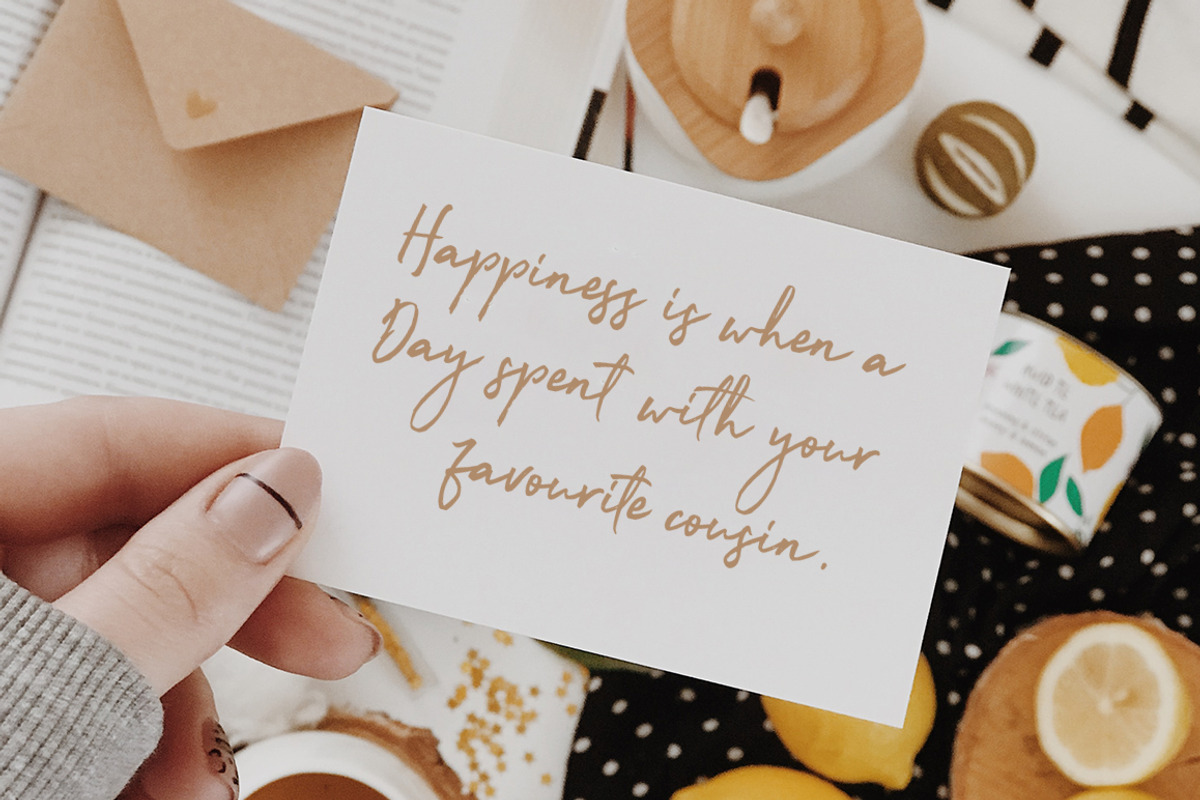 Happiness is when a
Day spent with your
favourite cousin.